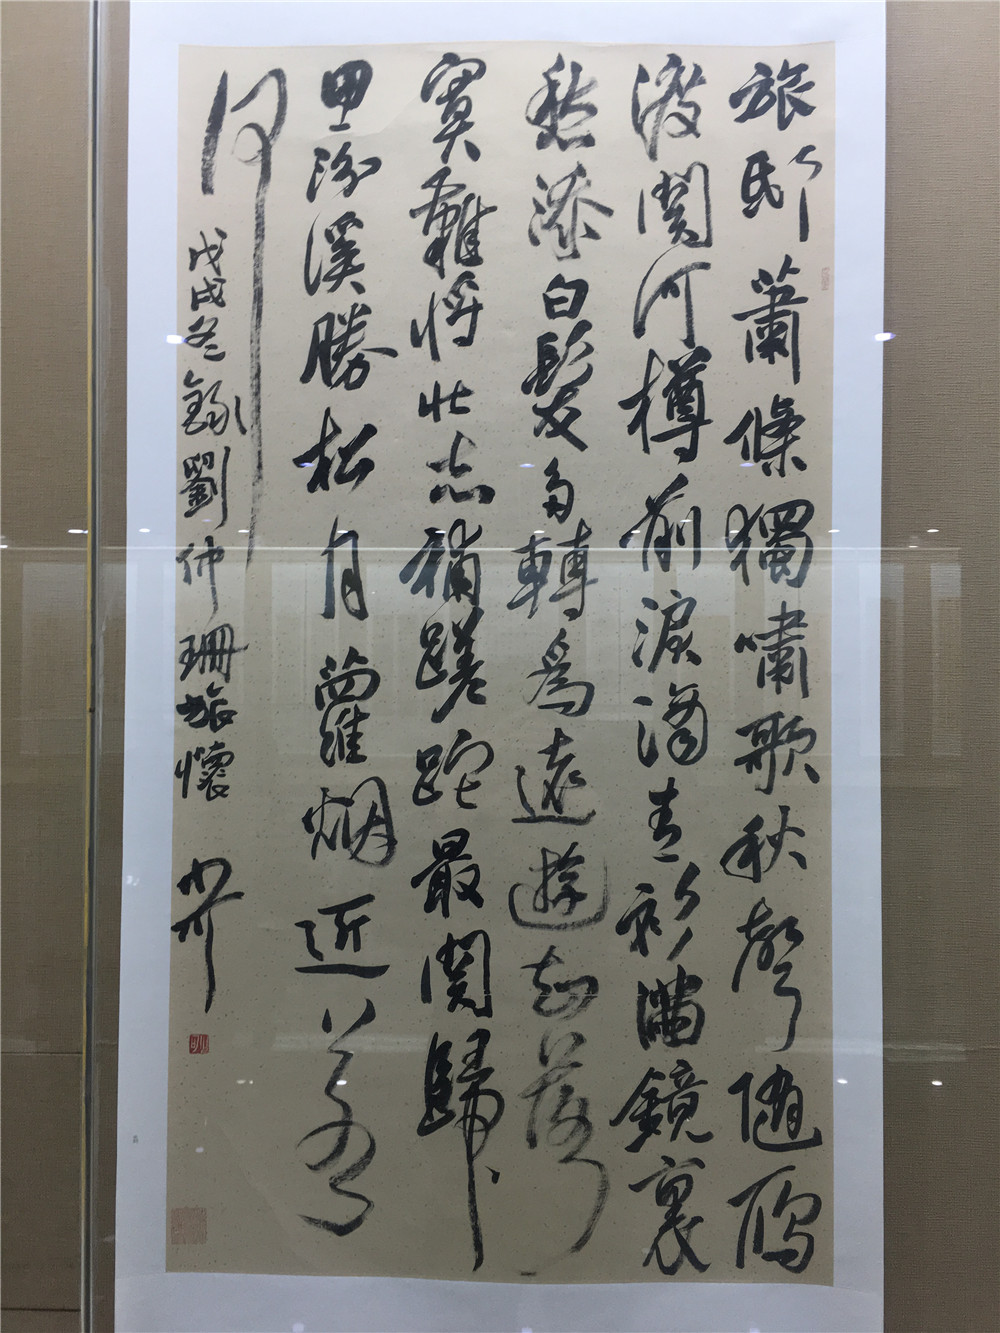 旅邸蕭條獨嘯歌秋聲隨鴈
渡關河樽前淚滴青衫滿鏡裏
愁添白髮多轉為遠遊知落
寞難將壯志補蹉跎最關歸
里汾溪勝松月蘿烟近若
何
戊戌冬錄劉仲珊旅懷